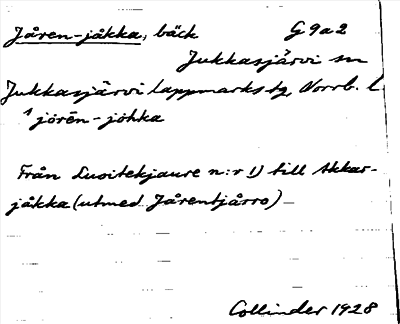 Jåren-jåkka, bäck G 9 a 2
Jukkasjärvi sn
Jukkasjärvi lappmarks tg, Norrb. l.
jörēn-johka
Från Luoitekjaure n:r 1) till Akkar-
jåkka (utmed Jårentjårro) –
Collinder 1928